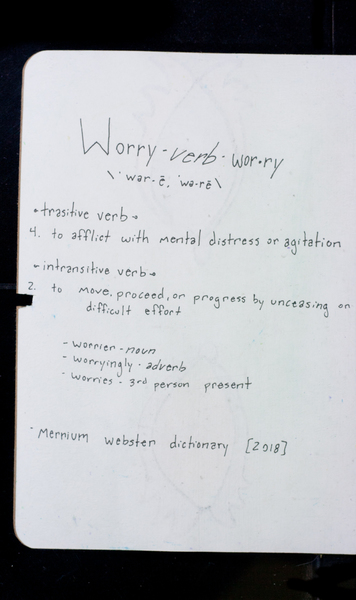 Worry - verb - wor·ry
\ˈwər-ē, ˈwə-rē\
•trasitive verb•
4. to afflict with mental distress or agitation
•intransitive verb•
2. to move, proceed, or progress by unceasing or
difficult effort
- worrier - noun
- worryingly - adverb
- worries - 3rd person present
- Merrium webster dictionary [2018]